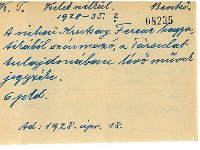 K. T. Kelet nélkül. Benkó
1928-35. ?
08235
A néhai Krecsay Ferenc hagya-
tékából származó, a Társulat
tulajdonában lévő művek
jegyzéke.
6 pld.
Ad: 1928. ápr. 18.